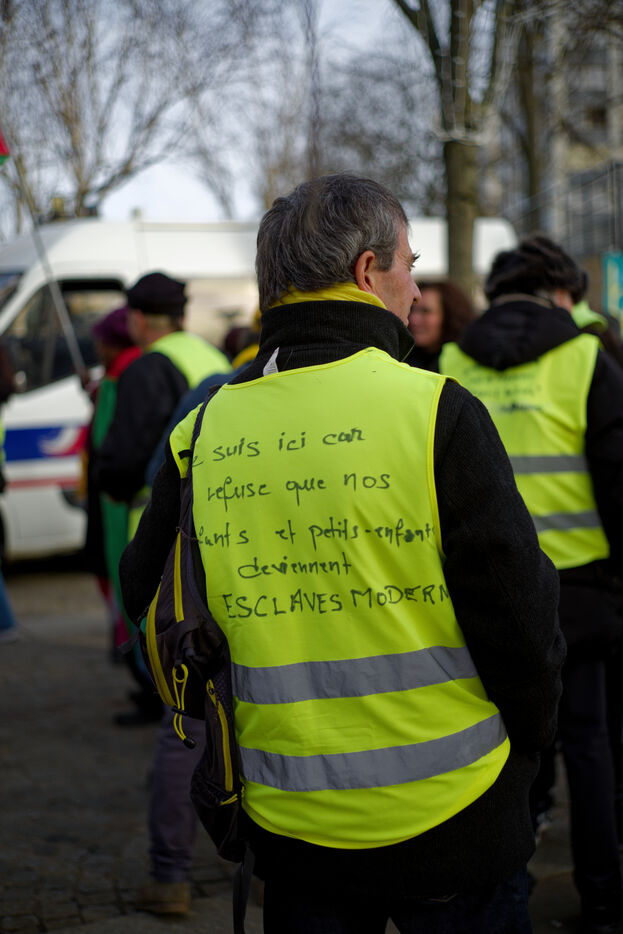 suis ici car
refuse que nos
fants et petits-enfants
deviennent
ESCLAVES MODERN